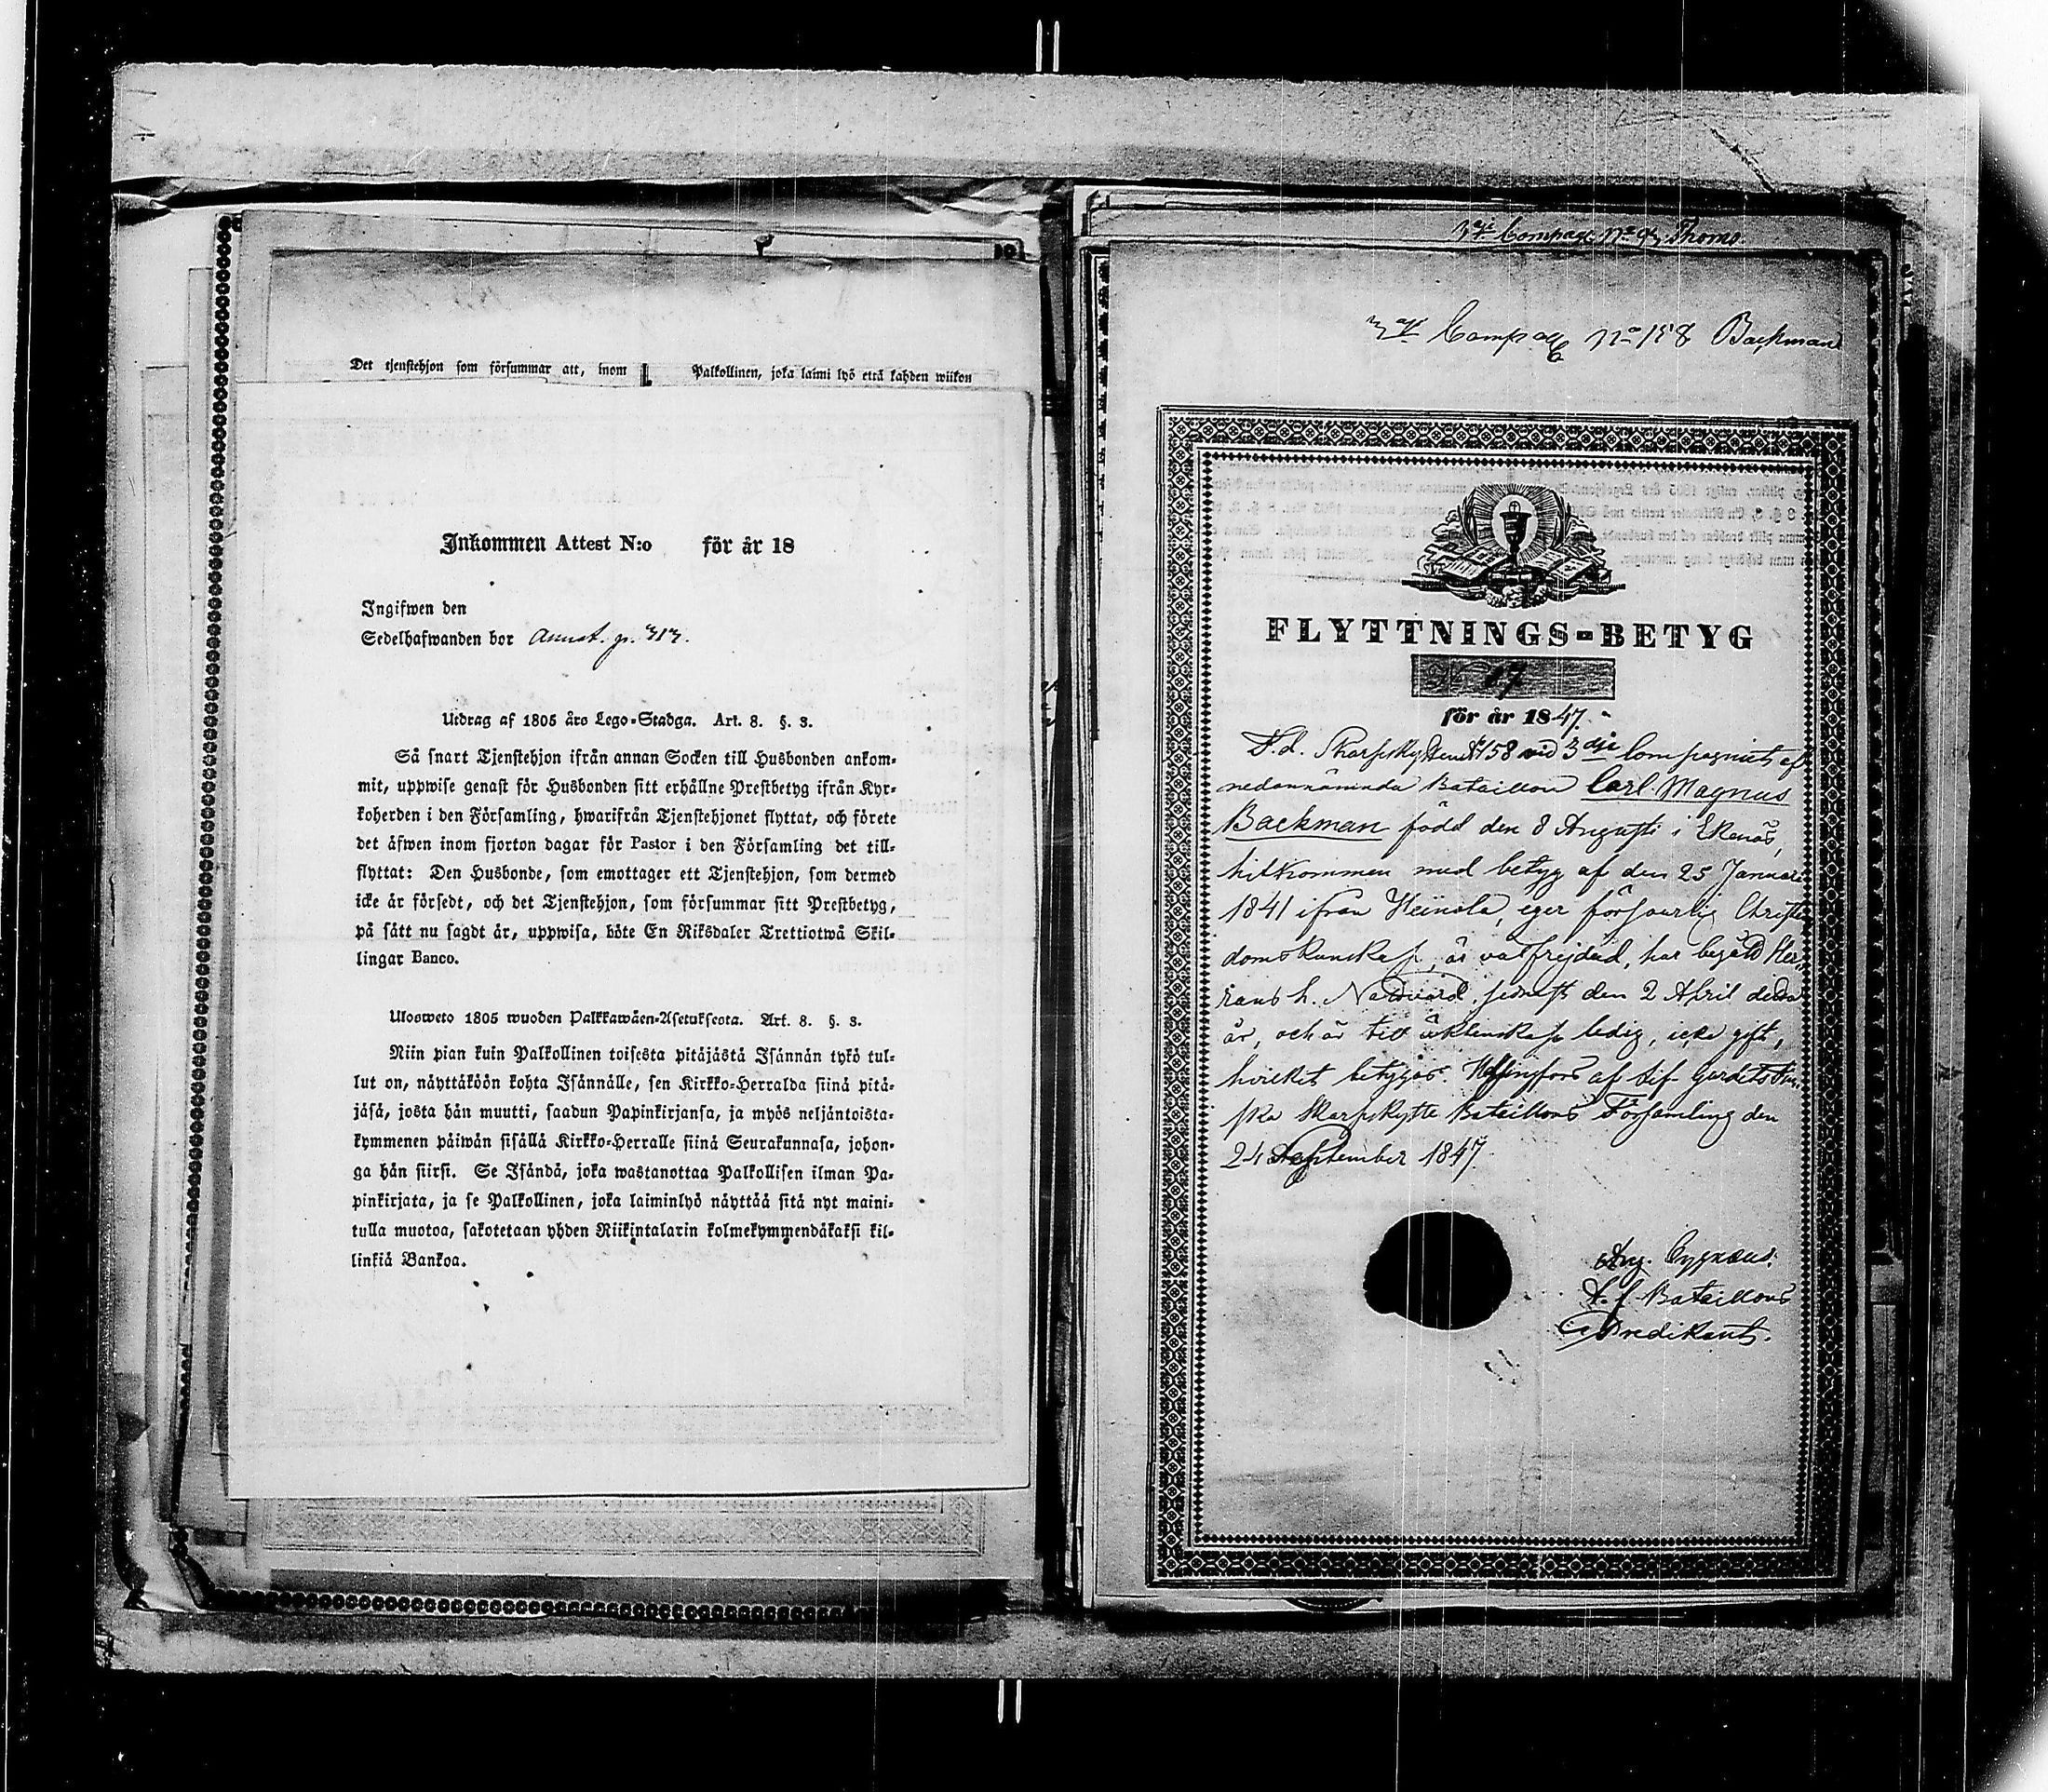 Det tjenstehjon som försummar att, inom
Palkollinen, joka laimi lyö että kahden wiikon
Inkommen Attest N:o för år 18
Ingifwen den
Sedelhafwanden bor Annot. p. 313.
Utdrag af 1805 års Lego-Stadga. Art. 8. §. 3.
Så snart Tjenstehjon ifrån annan Socken till Husbonden ankom-
mit, uppwise genast för Husbonden sitt erhållne Prestbetyg ifrån Kyr-
koherden i den Församling, hwarifrån Tjenstehjonet flyttat, och förete
det äfwen inom fjorton dagar för Pastor i den Församling det till-
flyttat: Den Husbonde, som emottager ett Tjenstehjon, som dermed
icke är försedt, och det Tjenstehjon, som försummar sitt Prestbetyg,
på sätt nu sagdt är, uppwisa, böte En Riksdaler Trettiotwå Skil-
lingar Banco.
Ulosweto 1805 wuoden Palkkawäen-Asetuksesta. Art. 8. §. 3.
Niin pian kuin Palkollinen toisesta pitäjästä Isännän tykö tul-
lut on, näyttäköön kohta Isännälle, sen Kirkko-Herralda siinä pitä-
jäsä, josta hän muutti, saadun Papinkirjansa, ja myös neljäntoista-
kymmenen päiwän sisällä Kirkko-Herralle siinä Seurakunnasa, johon-
ga hän siirsi. Se Isändä, joka wastanottaa Palkollisen ilman Pa-
pinkirjata, ja se Palkollinen, joka laiminlyö näyttää sitä nyt maini-
tulla muotoa, sakotetaan yhden Riikintalarin kolmekymmendäkaksi kil-
linkiä Bankoa.
3dje Compag No Thoms
3dje Compag No 158 Backman
FLYTTNINGS-BETYG
No 87
för år 1847.
F.d. Skarpskytten No 158 vid 3dje Compagniet af
nedannämnda Bataillon Carl Magnus
Backman född den 8 Augusti i Ekenäs,
hitkommen med betyg af den 25 Januari
1841 ifrån Heinola, eger försvarlig Christen-
domskunskap, är välfrejdad, har begått Her-
rans h. Nattvard sednast den 2 April detta
år, och är till äktenskap ledig, icke gift,
hvilket betygas. Helsingfors af Lif-Gardets Fin-
ska Skarpskytte Bataillons Församling den
24 September 1847
Aug. Cygnæus.
t. f. Bataillons
Predikant.